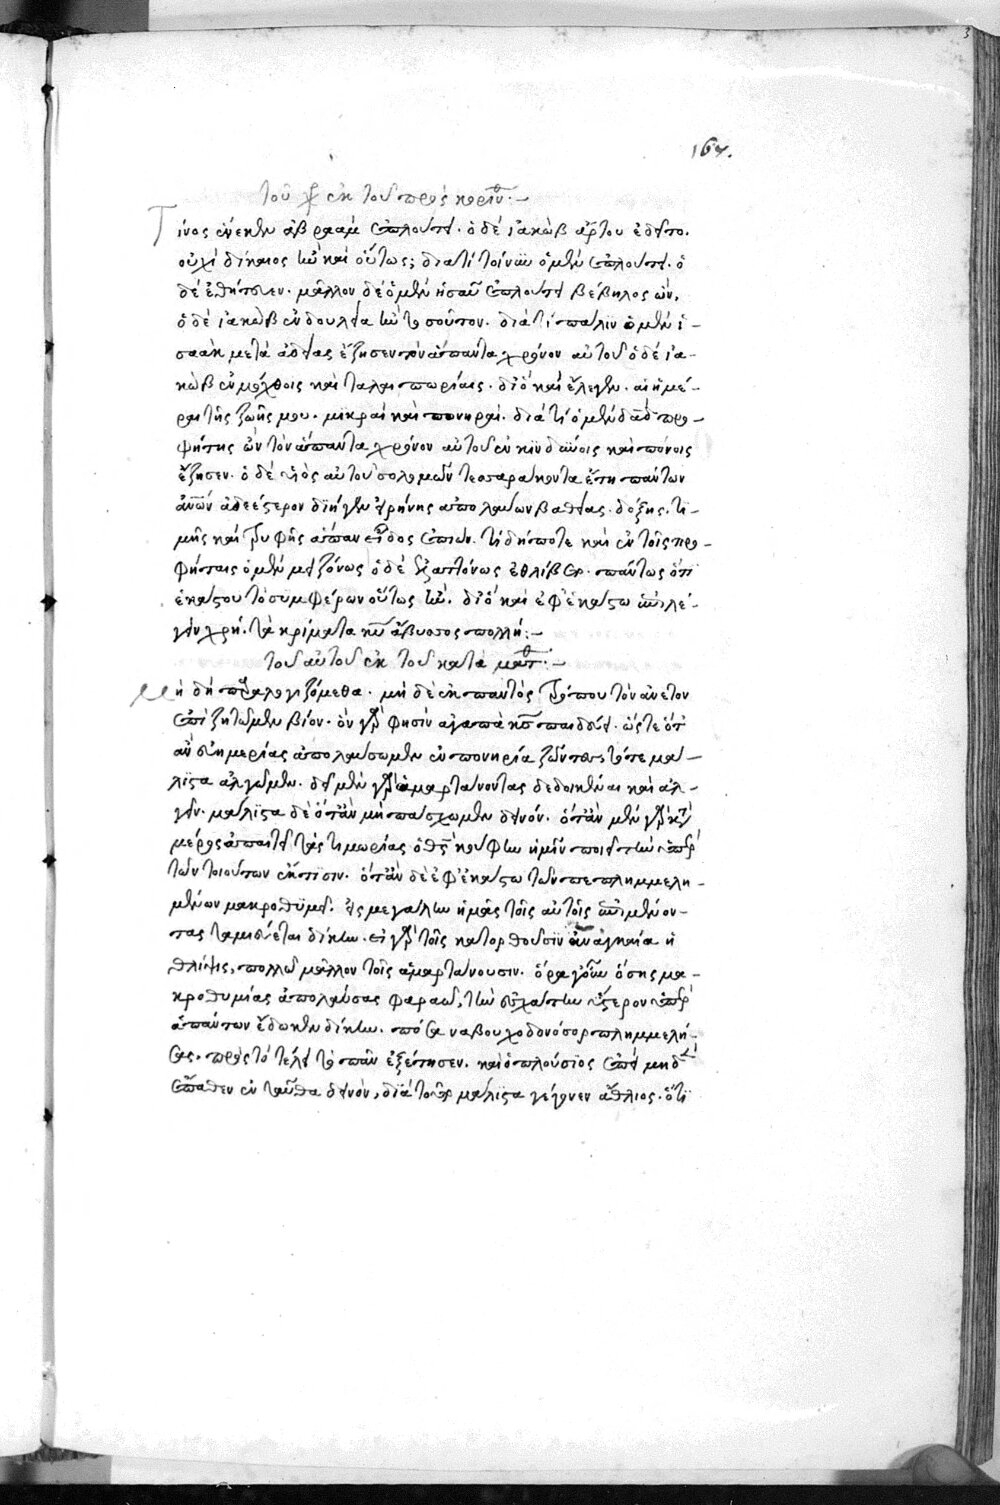 167.
τοῦ χρ ἐκ τοῦ πρὸς κορινθ:~
Τίνος ἕνεκεν ἀβραὰμ ἐπλούτει· ὁ δὲ ἰακὼβ ἄρτου ἐδεῖτο.
οὐχὶ δίκαιος ἦν καὶ οὗτος; διατί τοίνυν ὁ μὲν ἐπλούτει· ὁ
δὲ ἐθήτευεν· μᾶλλον δὲ ὁ μὲν ἠσαῦ ἐπλούτει βέβηλος ὤν,
ὁ δὲ ἰακὼβ ἐν δουλεία ἦν τοσοῦτον. διὰ τί πάλιν ὁ μὲν ἰ-
σαὰκ μετὰ ἀδείας ἔζησεν τὸν ἅπαντα χρόνον αὐτοῦ ὁ δὲ ἰα-
κὼβ ἐν μόχθοις καὶ ταλαιπωρίαις· διὸ καὶ ἔλεγεν· αἱ ἡμέ-
ραι τῆς ζωῆς μου· μικραὶ καὶ πονηραί. διὰ τί ὁ μὲν δαδ προ-
φήτης ὢν τὸν ἅπαντα χρόνον αὐτοῦ ἐν κινδύνοις καὶ πόνοις
ἔζησεν· ὁ δὲ υἱὸς αὐτοῦ σολομῶν τεσσαράκοντα ἔτη πάντων
ἀνῶν ἀδεέστερον διήγεν εἰρήνης ἀπολαύων βαθείας· δόξης· τι-
μῆς καὶ τρυφῆς ἅπαν εἶδος ἐπιών. τί δήποτε καὶ ἐν τοῖς προ-
φήταις ὁ μὲν μειζόνως ὁ δὲ ἐλαττόνως ἐθλίβετο· πάντως ὅτι
ἑκάστου τὸ συμφέρον οὕτως ἦν. διὸ καὶ ἐφ' ἑκάστω ἐπιλέ-
γειν χρή. τὰ κρίματα κυ ἄβυσσος πολλή:~
τοῦ αὐτοῦ ἐκ τοῦ κατὰ ματθ:~
Μὴ δὴ παραλογιζόμεθα· μὴ δὲ ἐκ παντὸς τρόπου τὸν ἄνετον
ἐπιζητῶμεν βίον· ὃν γάρ φησιν ἀγαπᾶ κς παιδεύει· ὥστε ὅτ'
ἂν εὐημερίας ἀπολαύσωμεν ἐν πονηρία ζῶντες, τότε μά-
λιστα ἀλγῶμεν. δεῖ μὲν γὰρ ἁμαρτάνοντας δεδοικέναι καὶ ἀλ-
γεῖν· μάλιστα δὲ ὅτἂν μὴ πάσχωμεν δεινόν. ὅτἂν μὲν γὰρ κατὰ
μέρος ἀπαιτεῖ τὰς τιμωρίας ὁ θς κούφην ἡμῖν ποιεῖ τὴν ὑπὲρ
τῶν τοιούτων ἔκτισιν. ὅτἂν δὲ ἐφ' ἑκάστω τῶν πεπλημμελη-
μένων μακροθυμεῖ· εἰς μεγάλην ἡμᾶς τοῖς αὐτοῖς ἐπιμένον-
τας ταμιεύεται δίκην. εἰ γὰρ τοῖς κατορθοῦσιν ἀναγκαία ἡ
θλίψις, πολλῶ μᾶλλον τοῖς ἁμαρτάνουσιν. ὅρα γοῦν ὅσης μα-
κροθυμίας ἀπολαύσας φαραώ, τὴν ἐσχάτην ὕστερον ὑπὲρ
ἁπάντων ἔδωκεν δίκην. πόσα ναβουχοδονόσορ πλημμελή-
σας. πρὸς τὸ τέλει τὸ πᾶν ἐξέτησεν. καὶ ὁ πλούσιος ἐπεὶ μηδὲν
ἔπαθεν ἐνταῦθα δεινόν, διὰ τοῦτο μάλιστα γέγονεν ἄθλιος· ὅτι